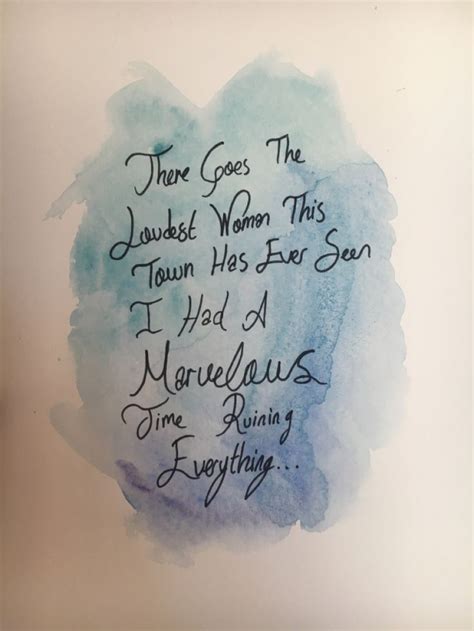 There Goes The
Loudest Woman This
Town Has Ever Seen
I Had A
Marvelous
Time Ruining
Everything...